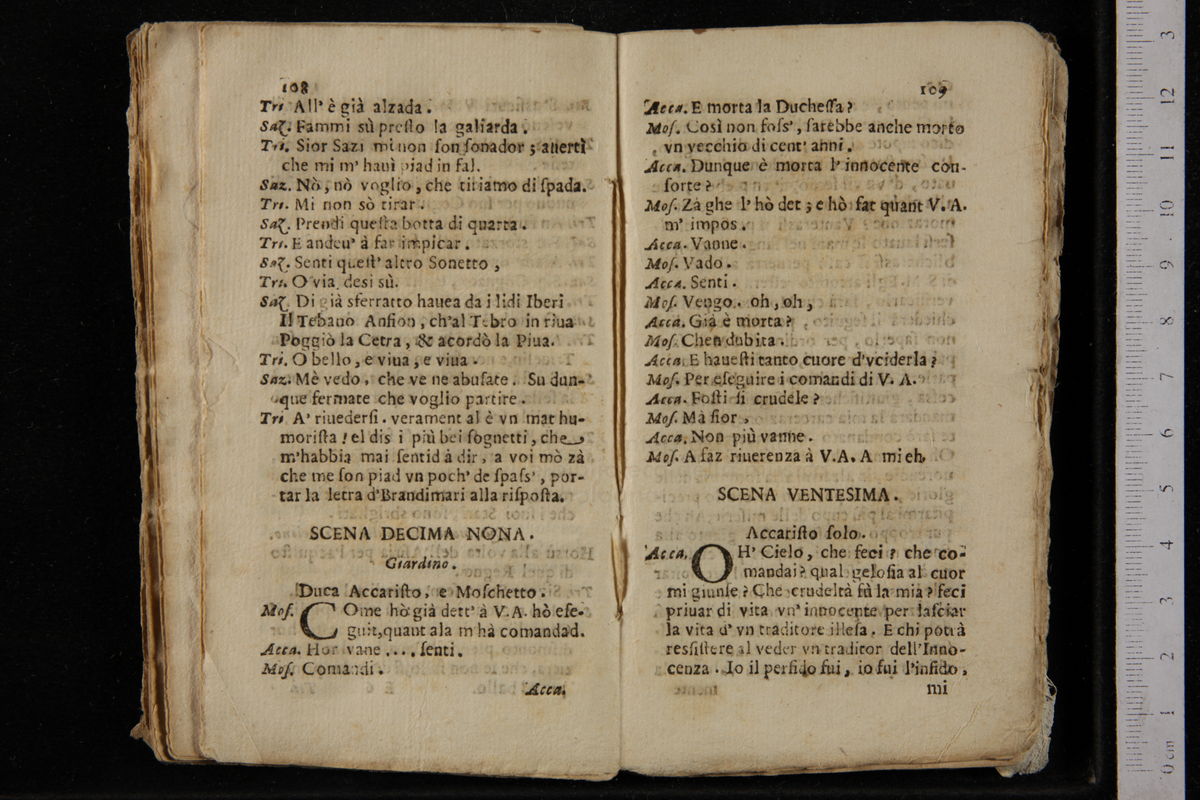 108
Tri All' è già alzada.
Saz. Fammi sù preſto la galiarda.
Tri. Sior Sazi mi non ſon ſonador; auertì
che mi m' hauì piad in fal.
Saz. Nò, nò voglio, che tiriamo di ſpada.
Tri. Mi non sò tirar.
Saz. Prendi queſta botta di quarta.
Tri. E andeu' à far impicar.
Saz. Senti queſt' altro Sonetto,
Tri. O via desi sù.
Saz. Di già sferratto hauea da i lidi Iberi
Il Tebano Anfion, ch'al Tebro in riua
Poggiò la Cetra, & acordò la Piua.
Tri. O bello, e viua, e viua.
Saz. Mè vedo, che ve ne abuſate. Su dun-
que fermate che voglio partire.
Tri A' riuederſi. verament al è vn mat hu-
moriſta! el dis i più bei ſognetti, che
m'habbia mai ſentid à dir, a voi mò zà
che me ſon piad vn poch' de ſpaſs', por-
tar la letra d'Brandimari alla riſpoſta.
SCENA DECIMA NONA.
Giardino.
Duca Accariſto, e Moſchetto.
Moſ. COme hò già dett' à V.A. hò eſe-
guit, quant ala m'hà comandad.
Acca. Hor vane .... ſenti.
Moſ. Comandi.
Acca.
109
Acca. E morta la Ducheſſa?
Moſ. Così non foſs', ſarebbe anche morto
vn vecchio di cent' anni.
Acca. Dunque è morta l'innocente con-
ſorte?
Moſ. Zà ghe l' hò det; e hò fat quant V. A.
m' impos.
Acca. Vanne.
Moſ. Vado.
Acca. Senti.
Moſ. Vengo. oh, oh,
Acca. Già è morta?
Moſ. Chen dubita.
Acca. E haueſti tanto cuore d'vciderla?
Moſ. Per eſeguire i comandi di V. A.
Acca. Foſti ſi crudele?
Moſ. Mà ſior,
Acca. Non più vanne.
Moſ. A faz riuerenza à V.A. A mi eh.
SCENA VENTESIMA.
Accariſto ſolo.
Acca. OH' Cielo, che feci? che co-
mandai? qual geloſia al cuor
mi giunſe? Che crudeltà fù la mia? feci
priuar di vita vn' innocente per laſciar
la vita d' vn traditore illeſa. E chi potrà
resſiſtere al veder vn traditor dell'Inno-
cenza. Io il perfido fui, io fui l'infido,
mi